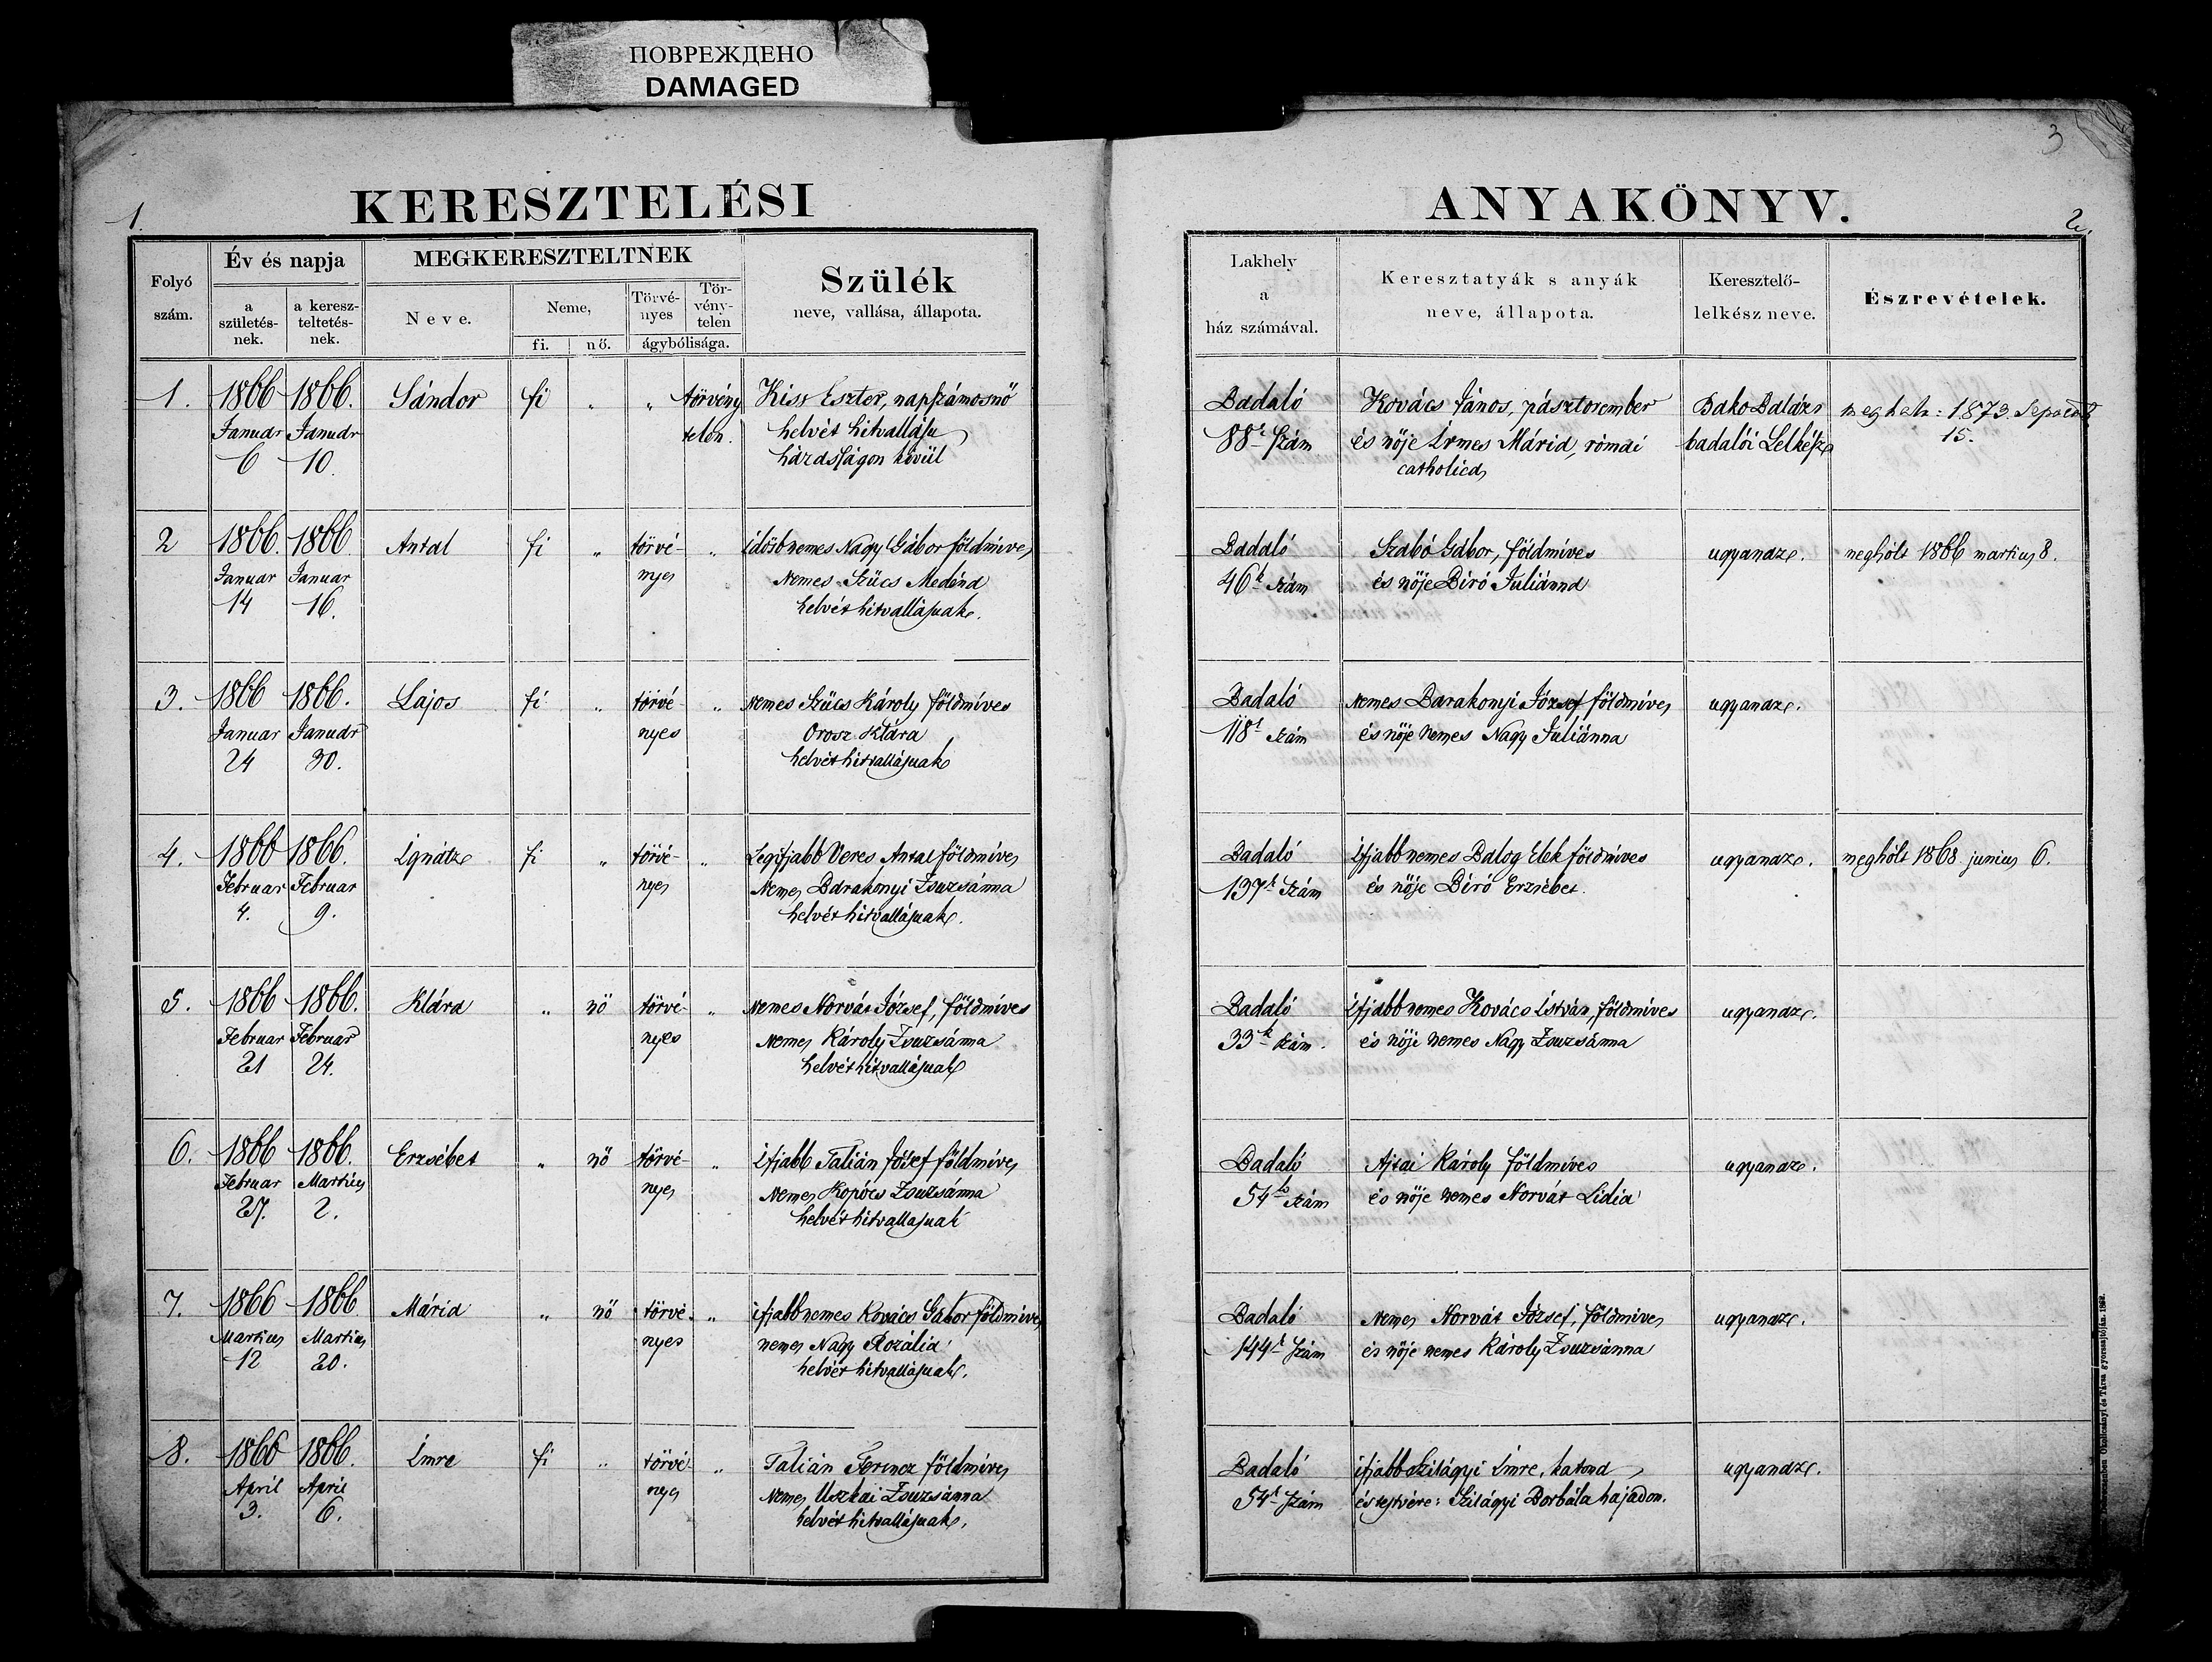 ПОВРЕЖДЕНО
DAMAGED
3
1.
KERESZTELÉSI
ANYAKÖNYV.
2.
Folyó szám.
Év és napja
a születés-nek.
a keresz-teltetés-nek.
MEGKERESZTELTNEK
Neve.
Neme,
fi.
nő.
Törvé-nyes
Tör-vény-telen
ágybólisága.
Szülék
neve, vallása, állapota.
Lakhely
a
ház számával.
Keresztatyák s anyák
neve, állapota.
Keresztelő-
lelkész neve.
Észrevételek.
1. 1866 1866. Sándor fi „ „ törvény Kiss Eszter, napszámosnő Badaló Kovács János, pásztorember Bako Balázs megholt: 1873. Sept
Január Január telen. helvét hitvallásu 88k Szám és nője Irmes Mária, római badalói Lelkész 15.
6 10. házasságon kivül catholica
2 1866. 1866. Antal fi „ törvé- „ idősb nemes Nagy Gábor földmíves Badaló Szabó Gábor, földmíves ugyanaz. meghólt 1866 martius 8.
Januar Januar nyes Nemes Szűcs Medárda 46k szám és nője Bíró Juliánna
14 16. helvét hitvallásuak.
3. 1866 1866. Lajos fi „ törvé- „ Nemes Szűcs Károly földmíves Badaló Nemes Barakonyi József földmíves ugyanaz.
Januar Január nyes Orosz Klára 118k szám és nője Nemes Nagy Juliánna
24 30. helvét hitvallásuak
4. 1866 1866. Ignátz fi „ törvé- „ Legifjabb Veres Antal földmíves Badaló Ifjabb nemes Balog Elek földmíves ugyanaz. meghólt 1868 junius 6.
Februar Februar nyes Nemes Barakonyi Zsuzsánna 137k Szám és nője Bíró Erzsébet.
4. 9. helvét hitvallásuak.
5. 1866 1866. Klára „ nő törvé- „ Nemes Horvát József, földmíves Badaló Ifjabb nemes Kovács István, földmíves ugyanaz.
Februar Februar nyes Nemes Károly Zsuzsánna 33k szám. és nője nemes Nagy Zsuzsánna
21 24. helvét hitvallásuak
6. 1866 1866. Erzsébet „ nő törvé- „ Ifjabb Talián József földmíves Badaló Ajtai Károly földmíves ugyanaz.
Februar Martius nyes Nemes Kopócs Zsuzsánna 54k szám és nője nemes Horvát Lidia
27. 2. helvét hitvallasuak
7. 1866 1866 Mária „ nő törvé- „ ifjabb nemes Kovács Gábor földmíves Badaló Nemes Horvát József, földmíves ugyanaz.
Martius Martius nyes nemes Nagy Rozália 144k Szám és nője nemes Károly Zsuzsánna
12 20. helvét hitvallásuak.
8. 1866 1866. Imre fi „ törvé- „ Talián Ferencz földmíves Badaló ifjabb Szilágyi Imre, katona ugyanaz.
April April nyes Nemes Uszkai Zsuzsánna 54k Szám és testvére: Szilágyi Borbála hajadon.
3. 6. helvét hitvallásuak.
Debreczenben Okolicsányi és Társa gyorssajtóján. 1862.